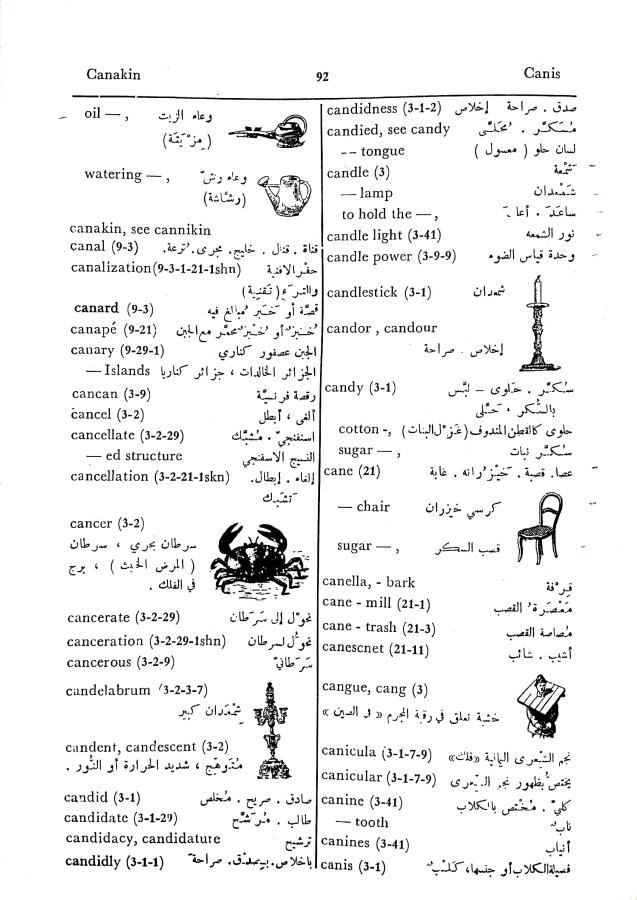 Canakin 92 Canis
oil —, وعاء الزيت
(مزيتة)
watering —, وعاء رش
(رشاشة)
canakin, see cannikin
canal (9-3) قناة . قنال . خليج . مجرى . ترعة.
canalization(9-3-1-21-1shn) حفر الاقنية
والترع (تقنية)
canard (9-3) قصة أو خبر مبالغ فيه
canapé (9-21) خبز أو خبز محمر مع الجبن
canary (9-29-1) الجبن عصفور كناري
— Islands الجزائر الخالدات ، جزائر كناريا
cancan (3-9) رقصة فرنسية
cancel (3-2) ألغى ، أبطل
cancellate (3-2-29) اسفنجي . مشبك
— ed structure النسيج الاسفنجي
cancellation (3-2-21-1skn) إلغاء . إبطال.
تشبيك
cancer (3-2)
سرطان بحري ، سرطان
(المرض الخبيث) ، برج
في الفلك .
cancerate (3-2-29) تحول إلى سرطان
canceration (3-2-29-1shn) تحول لسرطان
cancerous (3-2-9) سرطاني
candelabrum (3-2-3-7)
شمعدان كبير
candent, candescent (3-2)
متوهج ، شديد الحرارة أو النور .
candid (3-1) صادق . صريح . مخلص
candidate (3-1-29) طالب . مرشح
candidacy, candidature ترشيح
candidly (3-1-1) باخلاص . بصدق . صراحة
candidness (3-1-2) صدق . صراحة إخلاص
candied, see candy مسكر . محلى
-- tongue لسان حلو (معسول)
candle (3) شمعة
— lamp شمعدان
to hold the —, ساعد . أعان
candle light (3-41) نور الشمعه
candle power (3-9-9) وحدة قياس الضوء
candlestick (3-1) شمعدان
candor , candour
إخلاص . صراحة
candy (3-1) سكر . حلوى – لبس
بالسكر ، حلى
cotton -, حلوى كالقطن المندوف (غزل البنات)
sugar —, سكر نبات
cane (21) عصا . قصبة . خيزرانه . غابة
— chair كرسي خيزران
sugar —, قصب السكر
canella, - bark قرفة
cane - mill (21-1) معصرة القصب
cane - trash (21-3) مصاصة القصب
canescnet (21-11) أشيب . شائب
cangue, cang (3)
خشبة تعلق في رقبة المجرم « في الصين »
canicula (3-1-7-9) نجم الشعرى اليمانية «فلك»
canicular (3-1-7-9) يختص بظهور نجم الشعرى
canine (3-41) كلبي . مختص بالكلاب
— tooth ناب
canines (3-41) أنياب
canis (3-1) فصيلة الكلاب أو جنسها، كلب